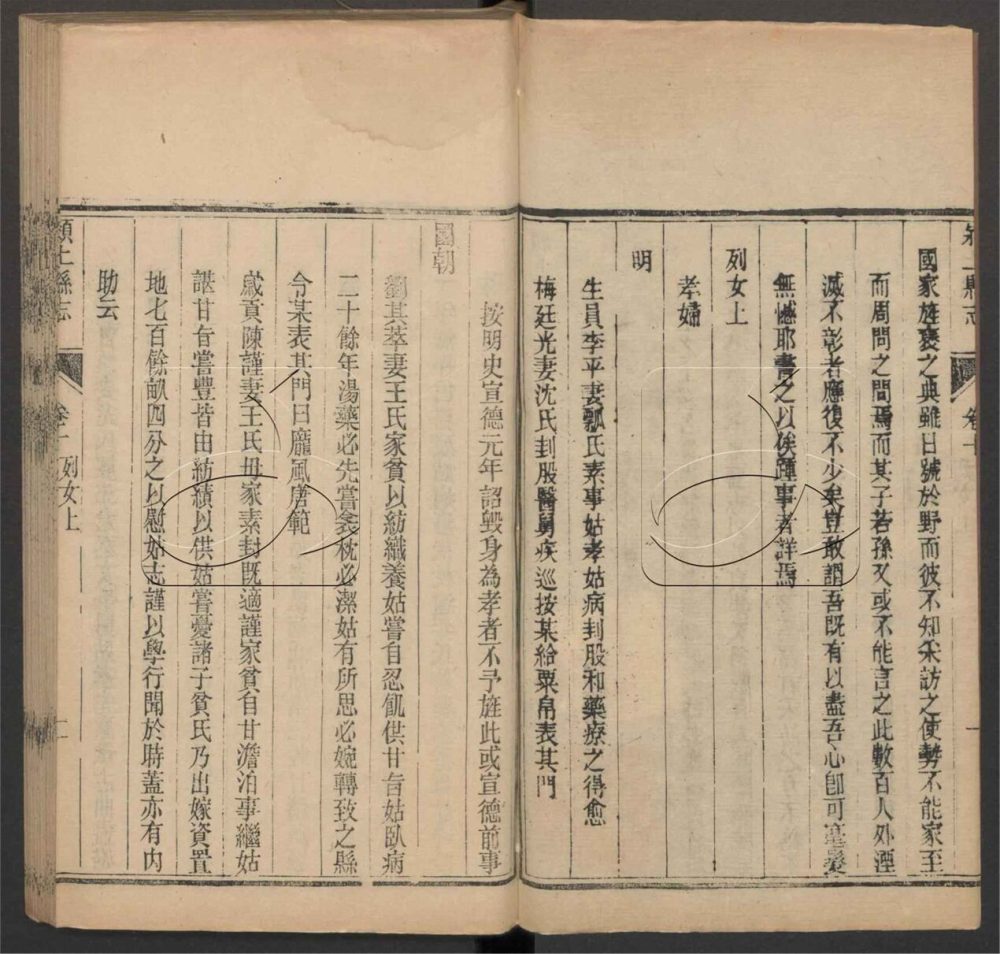 國家旌褒之典雖日號於野而彼不知采訪之使勢不能家至
而周問之間焉而其子若孫又或不能言之此數百人外湮
滅不彰者應復不少矣豈敢謂吾既有以盡吾心卽可毫髮
無憾耶書之以俟踵事者詳焉
列女上
孝婦
明
生員李平妻瓢氏素事姑孝姑病刲股和藥療之得愈
梅廷光妻沈氏刲股醫舅疾巡按某給粟帛表其門
卷十
一
按明史宣德元年詔毀身為孝者不予旌此或宣德前事
國朝
劉其萃妻王氏家貧以紡織養姑嘗自忍飢供甘旨姑臥病
二十餘年湯藥必先嘗衾枕必潔姑有所思必婉轉致之縣
令某表其門曰龐風唐範
歲貢陳謹妻王氏毋家素封既適謹家貧自甘澹泊事繼姑
諶甘旨嘗豐皆由紡績以供姑嘗憂諸子貧氏乃出嫁資置
地七百餘畝四分之以慰姑志謹以學行聞於時蓋亦有内
助云
潁上縣志
卷十
列女上
二